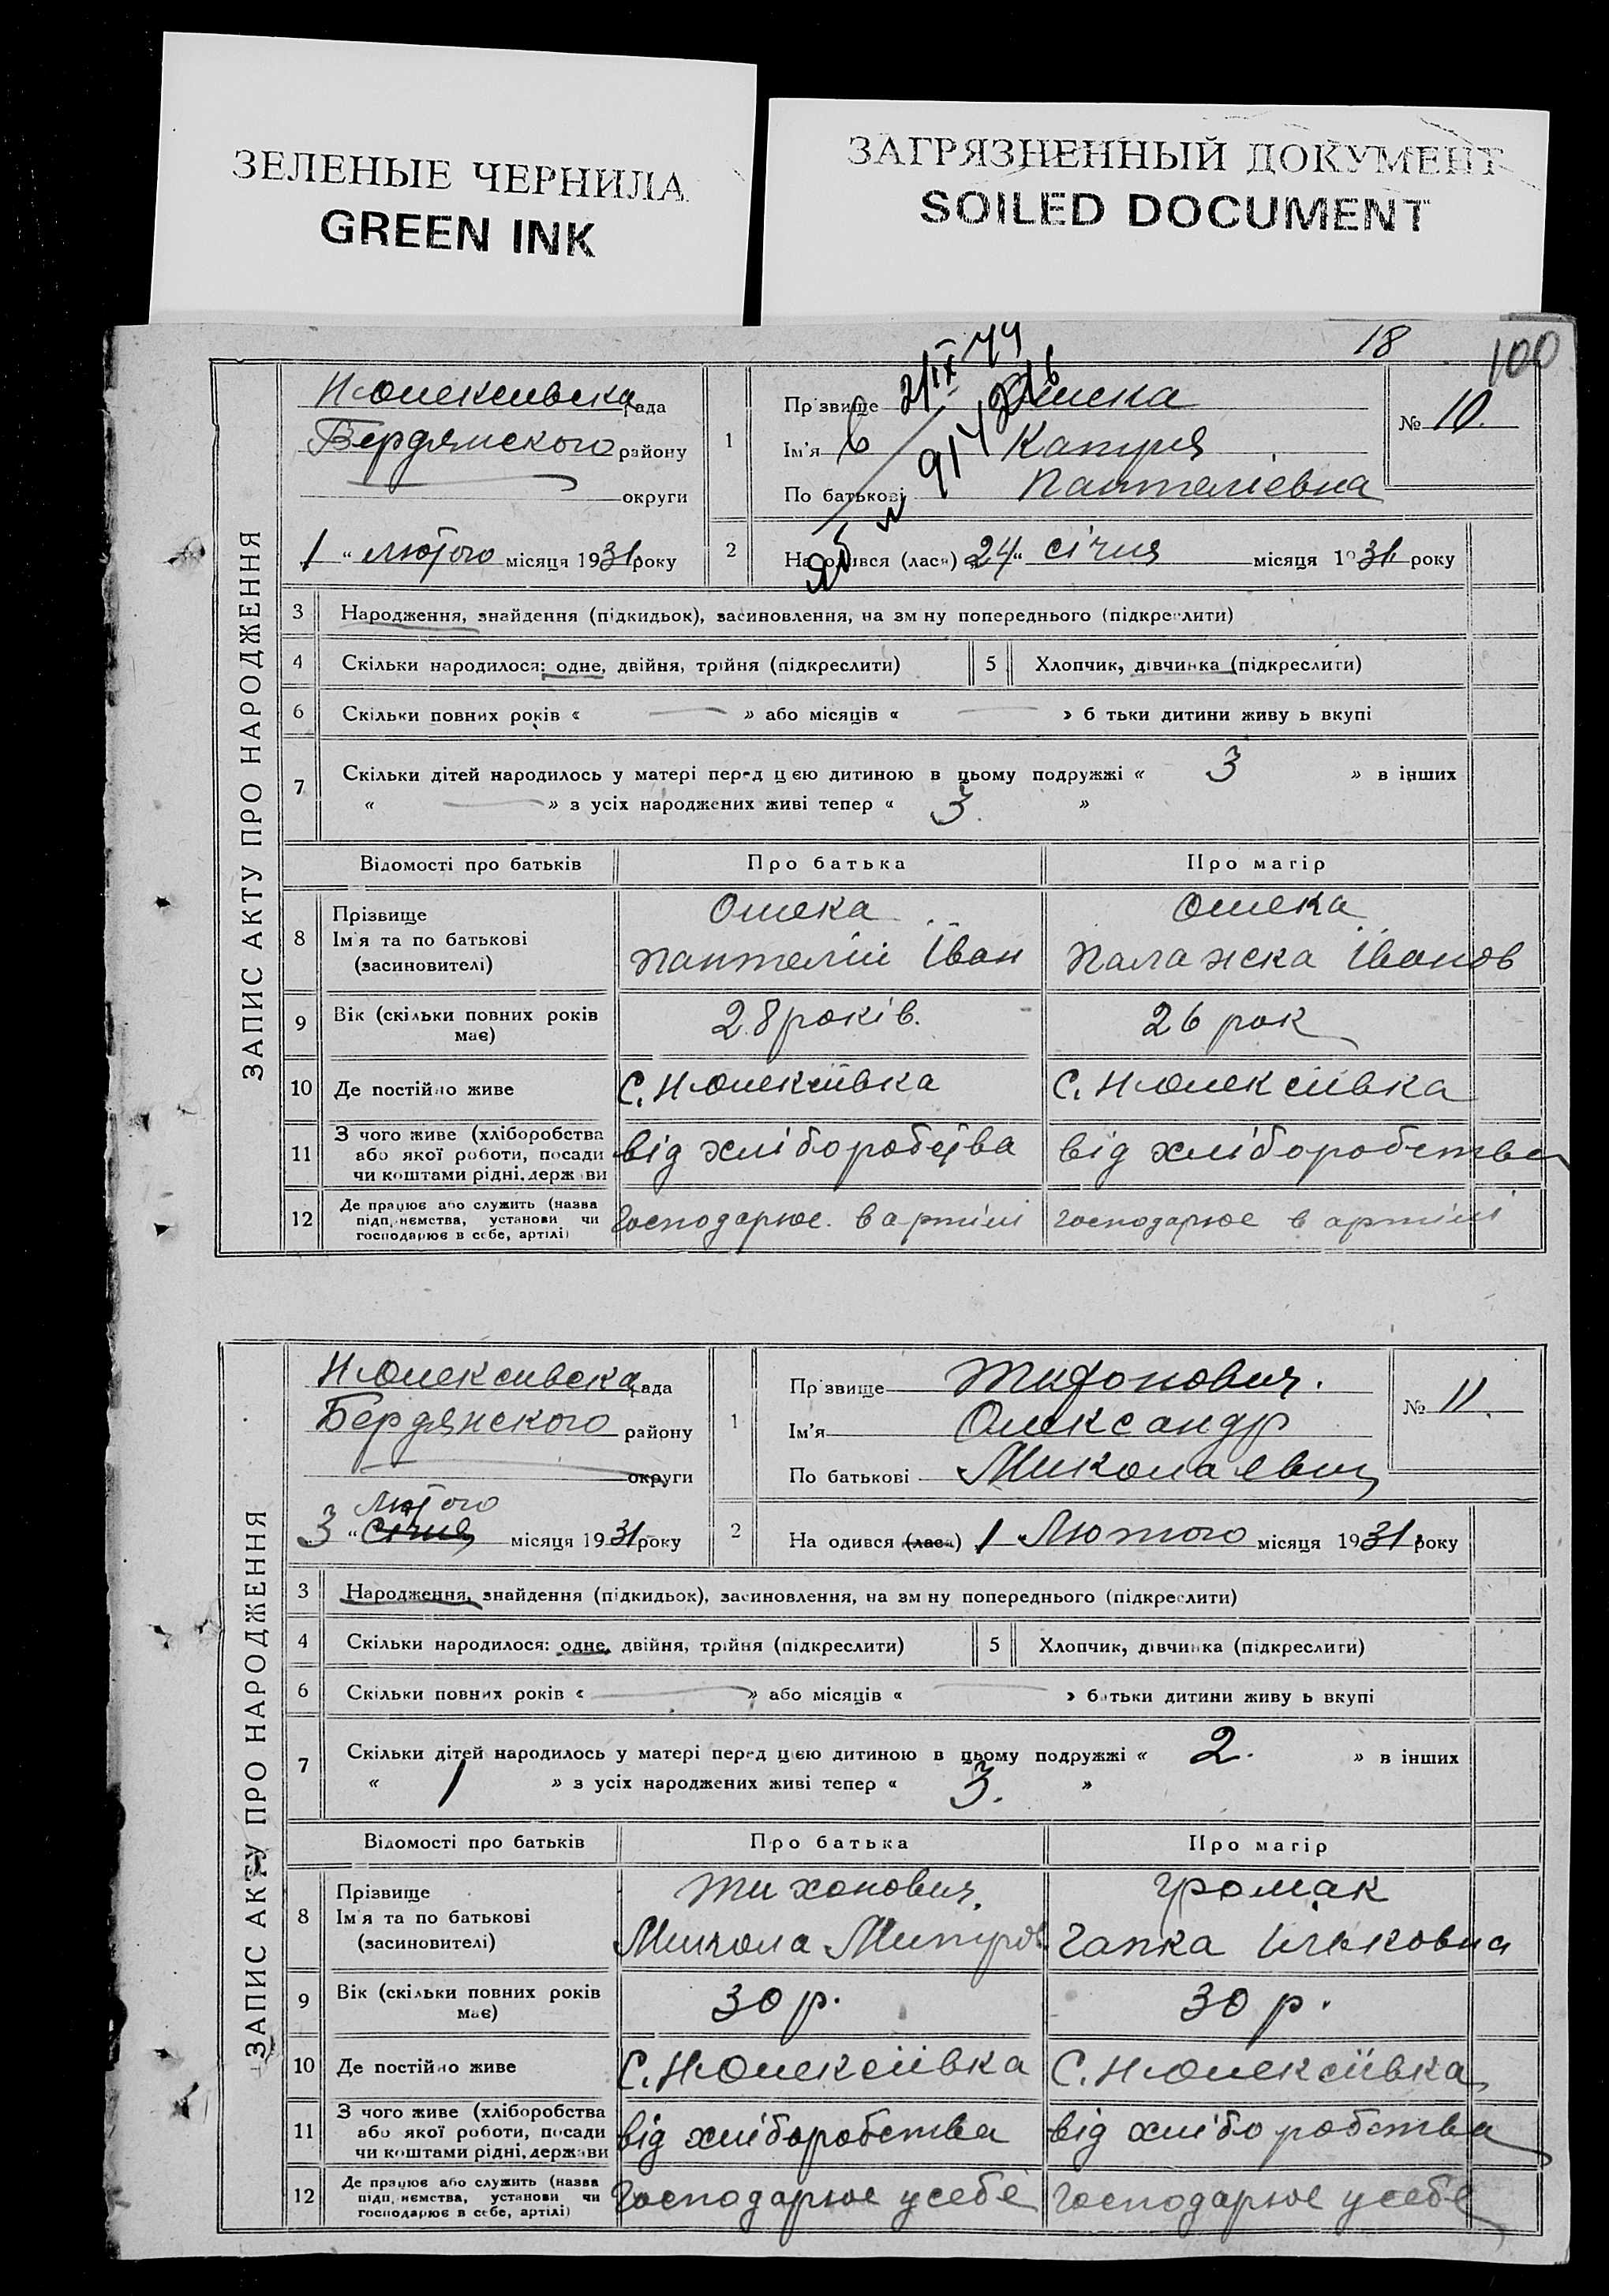 ЗЕЛЕНЫЕ ЧЕРНИЛА
GREEN INK
ЗАГРЯЗНЕННЫЙ ДОКУМЕНТ
SOILED DOCUMENT
18
100
ЗАПИС АКТУ ПРО НАРОДЖЕННЯ
Н-Олексивска рада
Бердянского району
округи
1 " лютого місяця 1931 року
1
Прізвище Ошека
Ім'я Катря
По батькові Пантеліевна
№ 10.
2
Народився (лася) 24 " січня місяця 1931 року
3 Народження, знайдення (підкидьок), засиновлення, на зм ну попереднього (підкреслити)
4 Скільки народилося: одне, двійня, трійня (підкреслити) 5 Хлопчик, дівчинка (підкреслити)
6 Скільки повних років « — » або місяців « — » б тьки дитини живу ь вкупі
7 Скільки дітей народилось у матері перед цією дитиною в цьому подружжі « 3 » в інших
« — » з усіх народжених живі тепер « 3. »
Відомості про батьків Про батька Про матір
8 Прізвище Ошека Ошека
Ім'я та по батькові (засиновителі) Пантелій Іван Палажска Іванов
9 Вік (скільки повних років має) 28 років. 26 рок
10 Де постійно живе С. Н-Олексіівка С. Н-Олексіівка
11 З чого живе (хліборобства або якої роботи, посади чи коштами рідні, держ ви від хліборобства від хліборобства
12 Де працює або служить (назва підп, нємства, установи чи господарює в себе, артілі) Господарює в артілі господарює в артілі
ЗАПИС АКТУ ПРО НАРОДЖЕННЯ
Н-Олексивска рада
Бердянского району
округи
лютого
3 " січня місяця 1931 року
1
Прізвище Тихонович.
Ім'я Олександр
По батькові Миколаевич
№ 11.
2
На одився (лася) 1 Лютого місяця 1931 року
3 Народження, знайдення (підкидьок), засиновлення, на зм ну попереднього (підкреслити)
4 Скільки народилося: одне, двійня, трійня (підкреслити) 5 Хлопчик, дівчинка (підкреслити)
6 Скільки повних років « — » або місяців « — » батьки дитини живу ь вкупі
7 Скільки дітей народилось у матері перед цією дитиною в цьому подружжі « 2. » в інших
« 1 » з усіх народжених живі тепер « 3. »
Відомості про батьків Про батька Про матір
8 Прізвище Тихонович. Громак
Ім'я та по батькові (засиновителі) Микола Митров. Гапка Ильковна
9 Вік (скільки повних років має) 30 р. 30 р.
10 Де постійно живе С. Н-Олексіівка С. Н-Олексіівка
11 З чого живе (хліборобства або якої роботи, посади чи коштами рідні, держави від хліборобства від хліборобства
12 Де працює або служить (назва підп, нємства, установи чи господарює в себе, артілі) Господарює у себе Господарює у себе